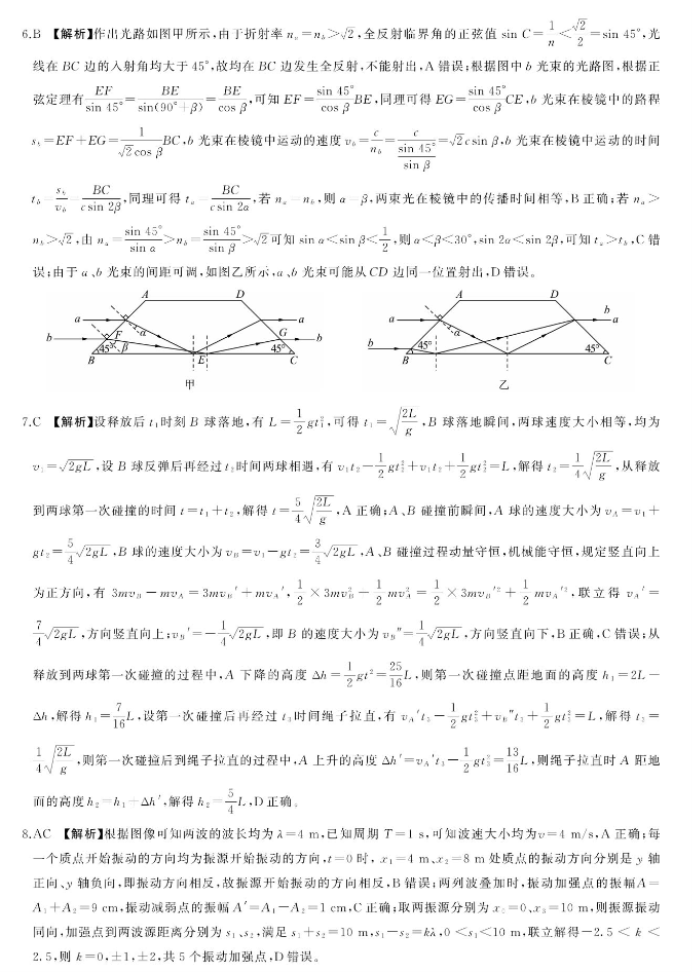 6.B 【解析】作出光路如图甲所示,由于折射率 nₐ=n_b>√2,全反射临界角的正弦值 sin C=1/n<√2/2=sin 45°,光
线在 BC 边的入射角均大于 45°,故均在 BC 边发生全反射,不能射出,A 错误;根据图中 b 光束的光路图,根据正
弦定理有 EF/sin 45°=BE/sin(90°+β)=BE/cos β,可知 EF=sin 45°/cos β BE,同理可得 EG=sin 45°/cos β CE,b 光束在棱镜中的路程
s_b=EF+EG=1/(√2cos β) BC,b 光束在棱镜中运动的速度 v_b=c/n_b=c/(sin 45°/sin β)=√2c sin β,b 光束在棱镜中运动的时间
t_b=s_b/v_b=BC/(c sin 2β),同理可得 tₐ=BC/(c sin 2α),若 nₐ=n_b,则 α=β,两束光在棱镜中的传播时间相等,B 正确;若 nₐ>
n_b>√2,由 nₐ=sin 45°/sin α>n_b=sin 45°/sin β>√2可知 sin α<sin β<1/2,则 α<β<30°,sin 2α<sin 2β,可知 tₐ>t_b,C 错
误;由于 a、b 光束的间距可调,如图乙所示,a、b 光束可能从 CD 边同一位置射出,D 错误。
A D
a α a
b F G b
45° β 45°
B E C
甲
A D
a α b a
b 45° 45°
B C
乙
7.C 【解析】设释放后 t₁时刻 B 球落地,有 L=1/2 gt₁²,可得 t₁=√(2L/g),B 球落地瞬间,两球速度大小相等,均为
v₁=√(2gL),设 B 球反弹后再经过 t₂时间两球相遇,有 v₁t₂-1/2 gt₂²+v₁t₂+1/2 gt₂²=L,解得 t₂=1/4 √(2L/g),从释放
到两球第一次碰撞的时间 t=t₁+t₂,解得 t=5/4 √(2L/g),A 正确;A、B 碰撞前瞬间,A 球的速度大小为 v_A=v₁+
gt₂=5/4 √(2gL),B 球的速度大小为 v_B=v₁-gt₂=3/4 √(2gL),A、B 碰撞过程动量守恒,机械能守恒,规定竖直向上
为正方向,有 3mv_B-mv_A=3mv_B′+mv_A′,1/2×3mv_B²-1/2 mv_A²=1/2×3mv_B′²+1/2 mv_A′²,联立得 v_A′=
7/4 √(2gL),方向竖直向上;v_B′=-1/4 √(2gL),即 B 的速度大小为 v_B″=1/4 √(2gL),方向竖直向下,B 正确,C 错误;从
释放到两球第一次碰撞的过程中,A 下降的高度 Δh=1/2 gt²=25/16 L,则第一次碰撞点距地面的高度 h₁=2L-
Δh,解得 h₁=7/16 L,设第一次碰撞后再经过 t₃时间绳子拉直,有 v_A′t₃-1/2 gt₃²+v_B″t₃+1/2 gt₃²=L,解得 t₃=
1/4 √(2L/g),则第一次碰撞后到绳子拉直的过程中,A 上升的高度 Δh′=v_A′t₃-1/2 gt₃²=13/16 L,则绳子拉直时 A 距地
面的高度 h₂=h₁+Δh′,解得 h₂=5/4 L,D 正确。
8.AC 【解析】根据图像可知两波的波长均为 λ=4 m,已知周期 T=1 s,可知波速大小均为v=4 m/s,A 正确;每
一个质点开始振动的方向均为振源开始振动的方向,t=0 时,x₁=4 m、x₂=8 m 处质点的振动方向分别是 y 轴
正向、y 轴负向,即振动方向相反,故振源开始振动的方向相反,B 错误;两列波叠加时,振动加强点的振幅A=
A₁+A₂=9 cm,振动减弱点的振幅 A′=A₁-A₂=1 cm,C 正确;取两振源分别为 =0、=10 m,则振源振动
同向,加强点到两波源距离分别为 s₁、s₂,满足 s₁+s₂=10 m,s₁-s₂=kλ,0<s₁<10 m,联立解得-2.5<k<
2.5,则 k=0,±1,±2,共 5 个振动加强点,D 错误。